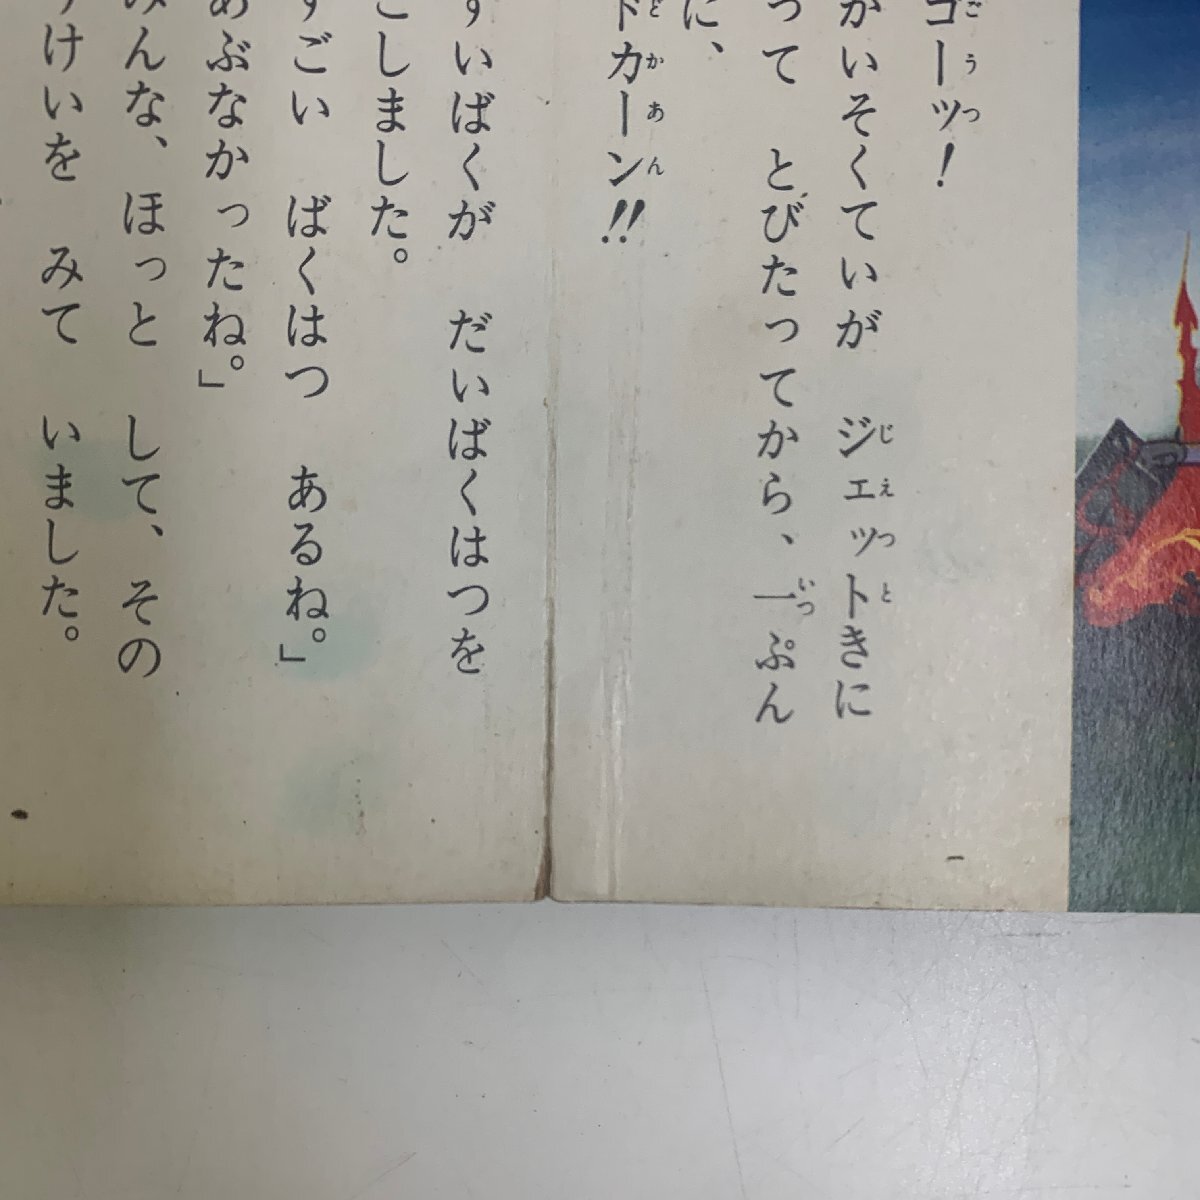 ゴーッ!
かいそくていが ジェットきに
って とびたってから、一ぷん
に、
ドカーン!!
すいばくが だいばくはつを
こしました。
すごい ばくはつ あるね。」
あぶなかったね。」
みんな、ほっと して、その
けいを みて いました。